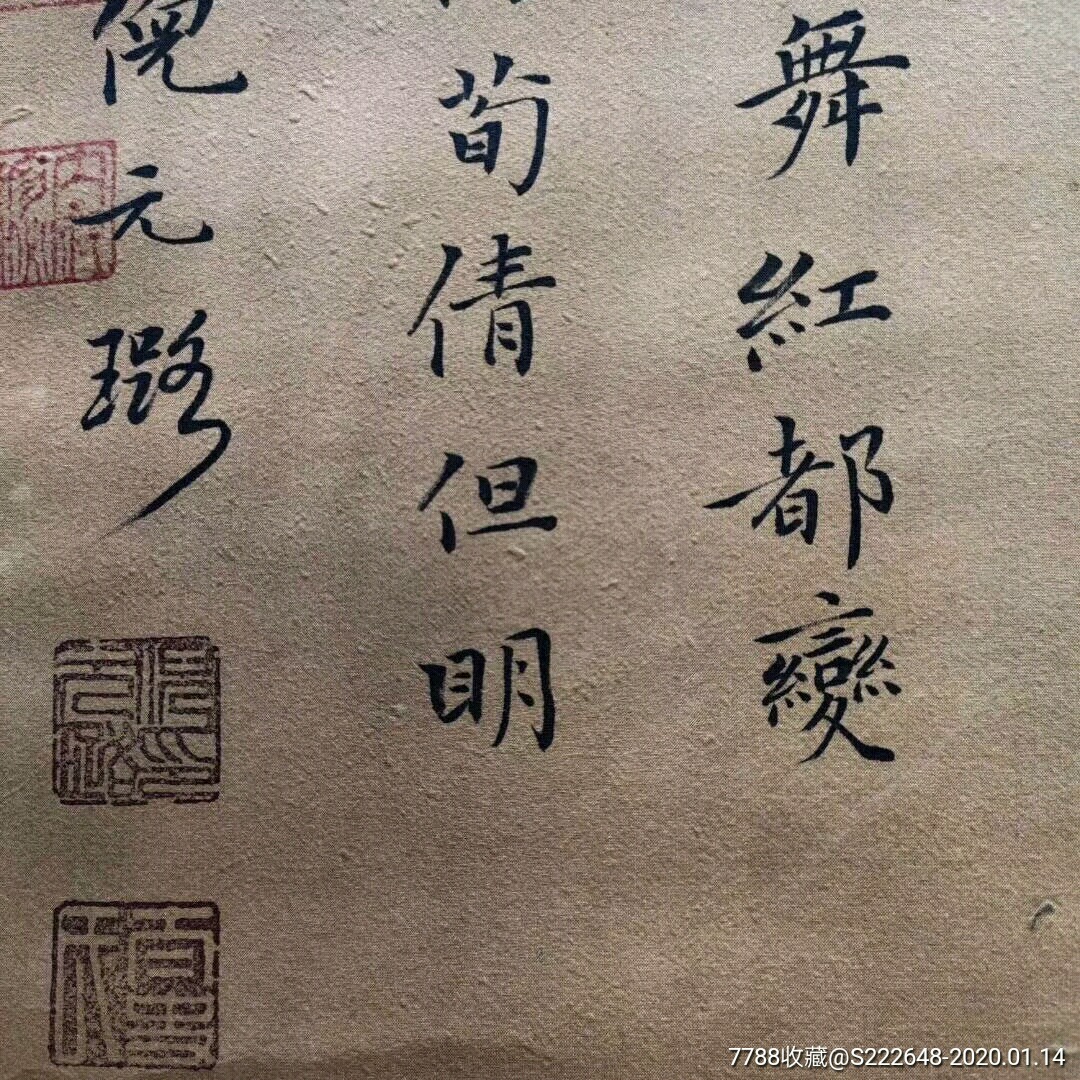 舞紅都變
荀倩但明
倪元璐
7788收藏@S222648-2020.01.14